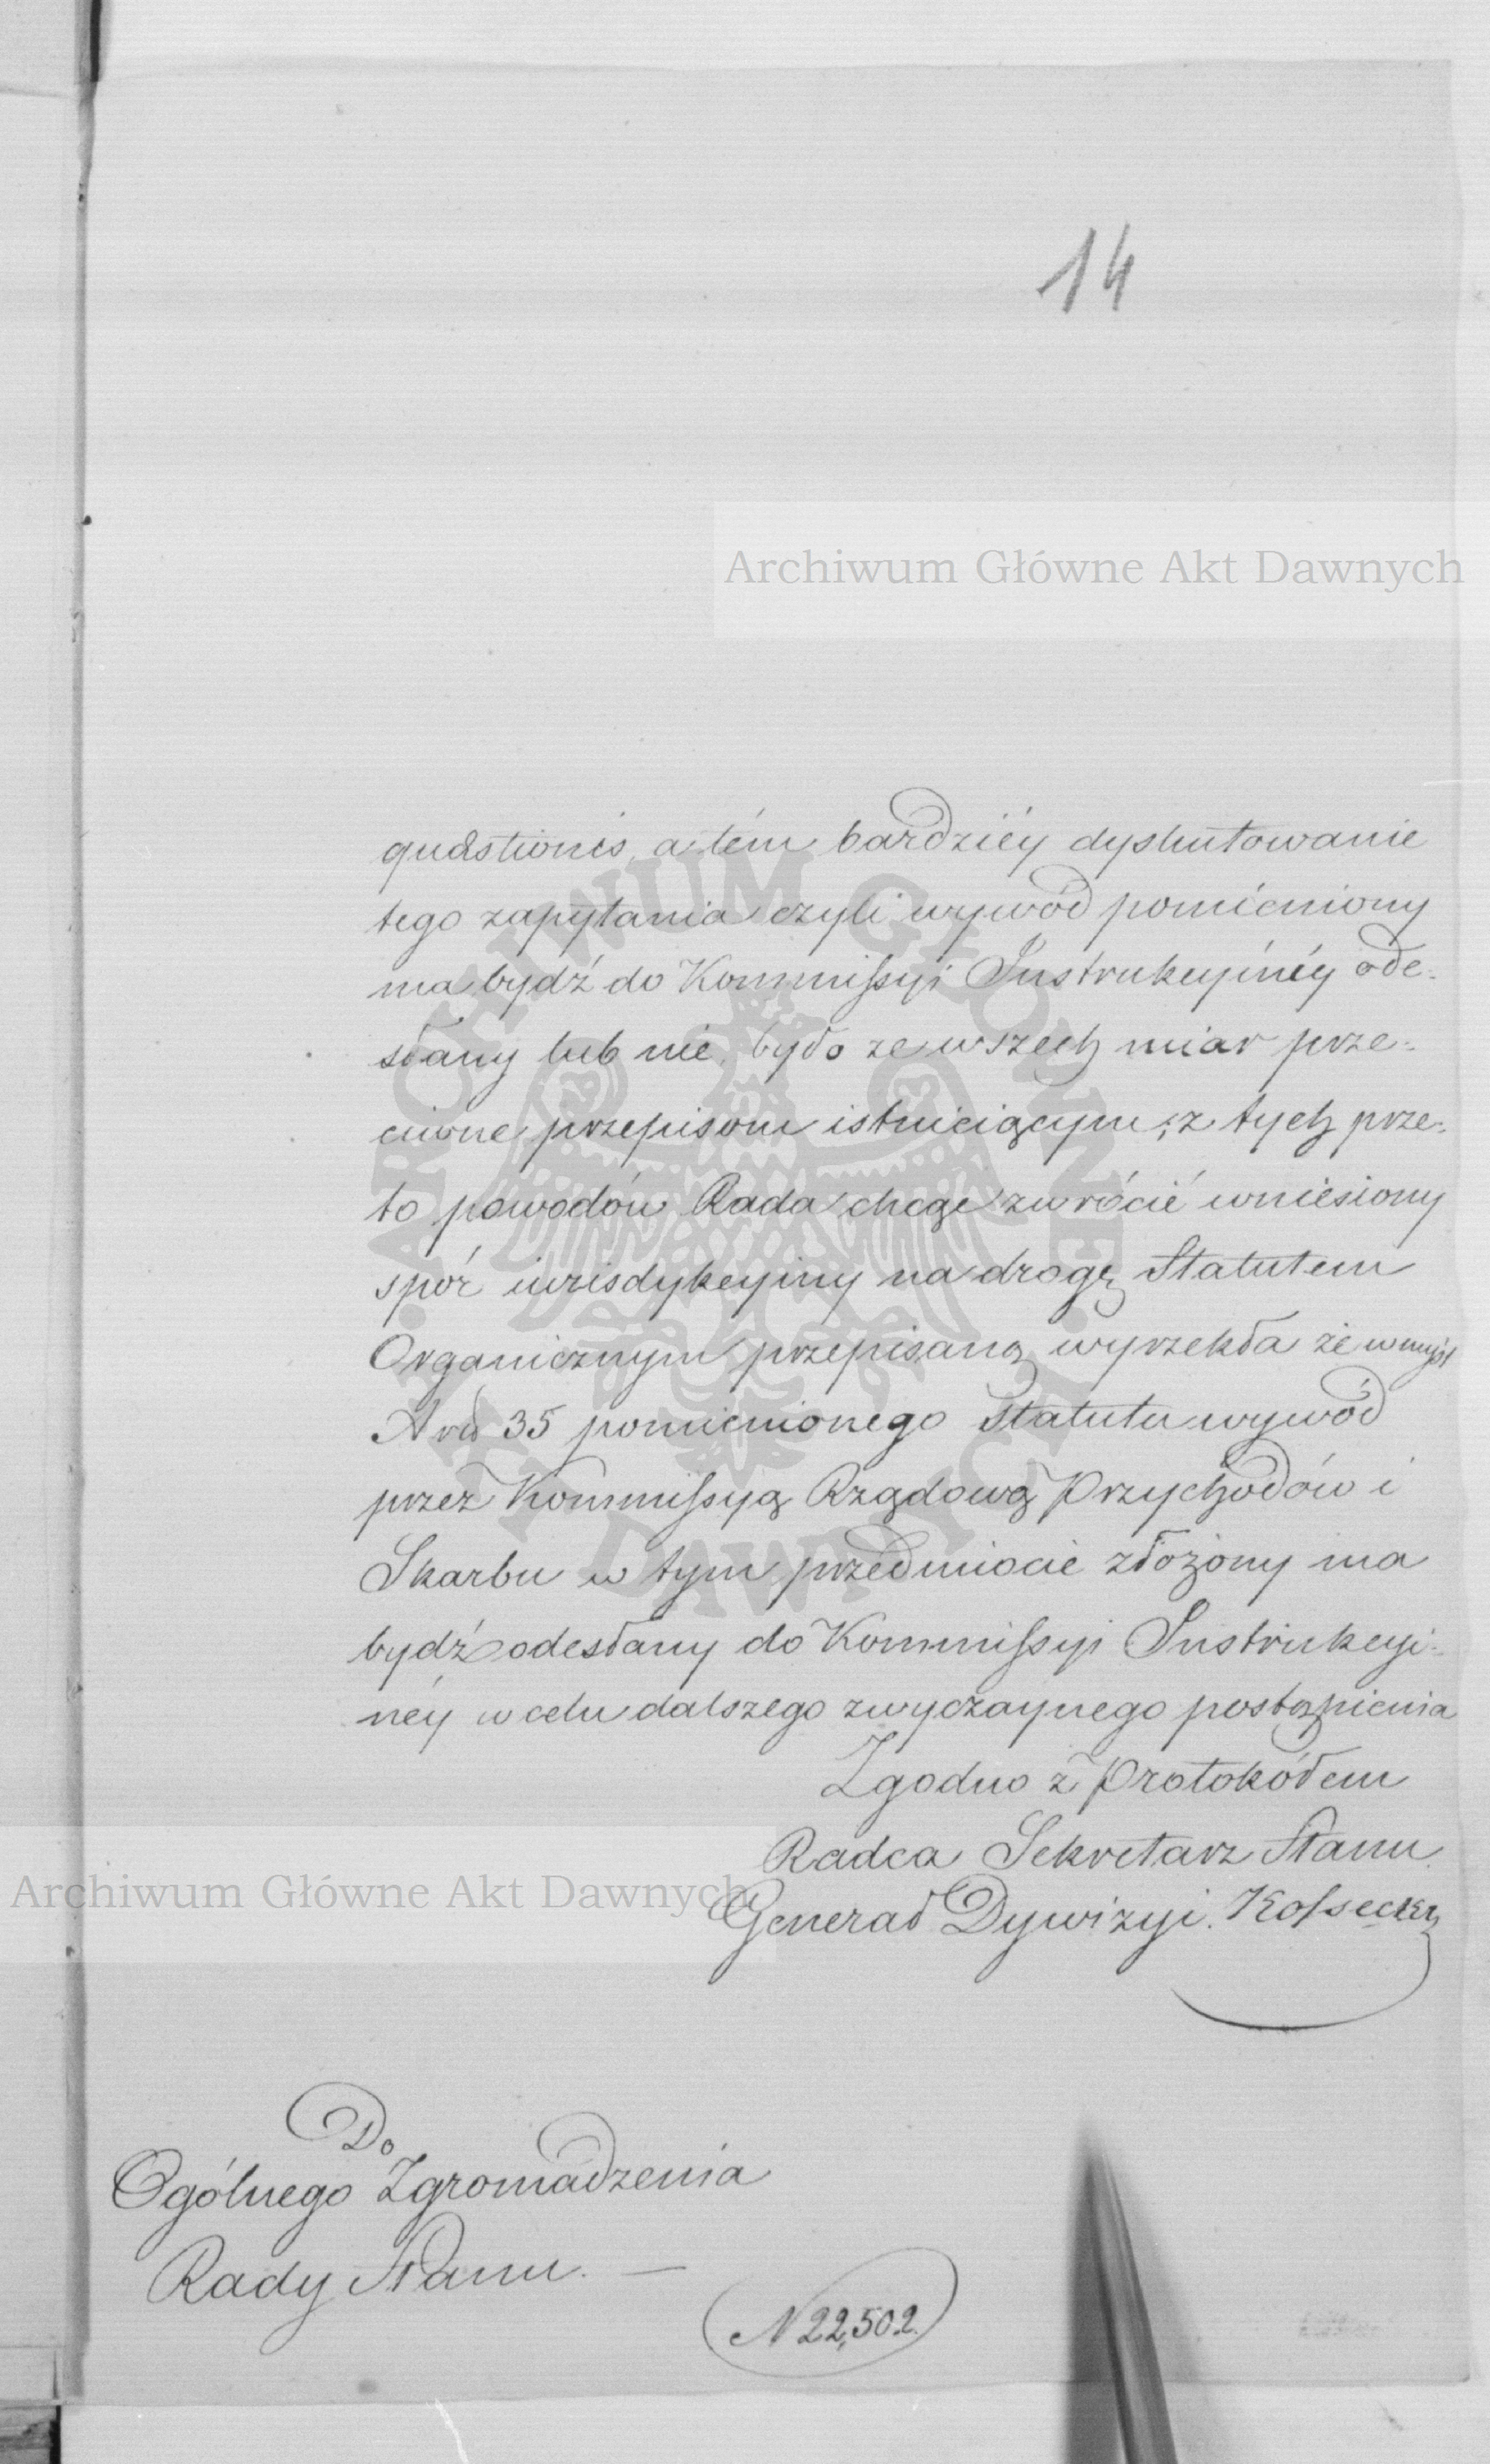 14
Archiwum Główne Akt Dawnych
quæstionis, a tém bardziéy dyskutowanie
tego zapytania czyli wywód pomieniony
ma bydź do Kommissyi Instrukcyinéy ode-
słany lub nie, było ze wszech miar prze-
ciwne przepisom istnieiącym; z tych prze-
to powodów Rada chcąc zwrócić wniesiony
spór iurisdykcyiny na drogę Statutem
Organicznym przepisaną wyrzekła że w myśl
Art 35 pomienionego Statutu wywód
przez Kommissyą Rządową Przychodów i
Skarbu w tym przedmiocie złożony ma
bydź odesłany do Kommissyi Instrukcyi-
néy w celu dalszego zwyczaynego postąpienia
Zgodno z Protokółem
Radca Sekretarz Stanu
Archiwum Główne Akt Dawnych
Generał Dywizyi. Kossecki
Do
Ogólnego Zgromadzenia
Rady Stanu. —
N 22,502.
ARCHIWUM GŁÓWNE AKT DAWNYCH